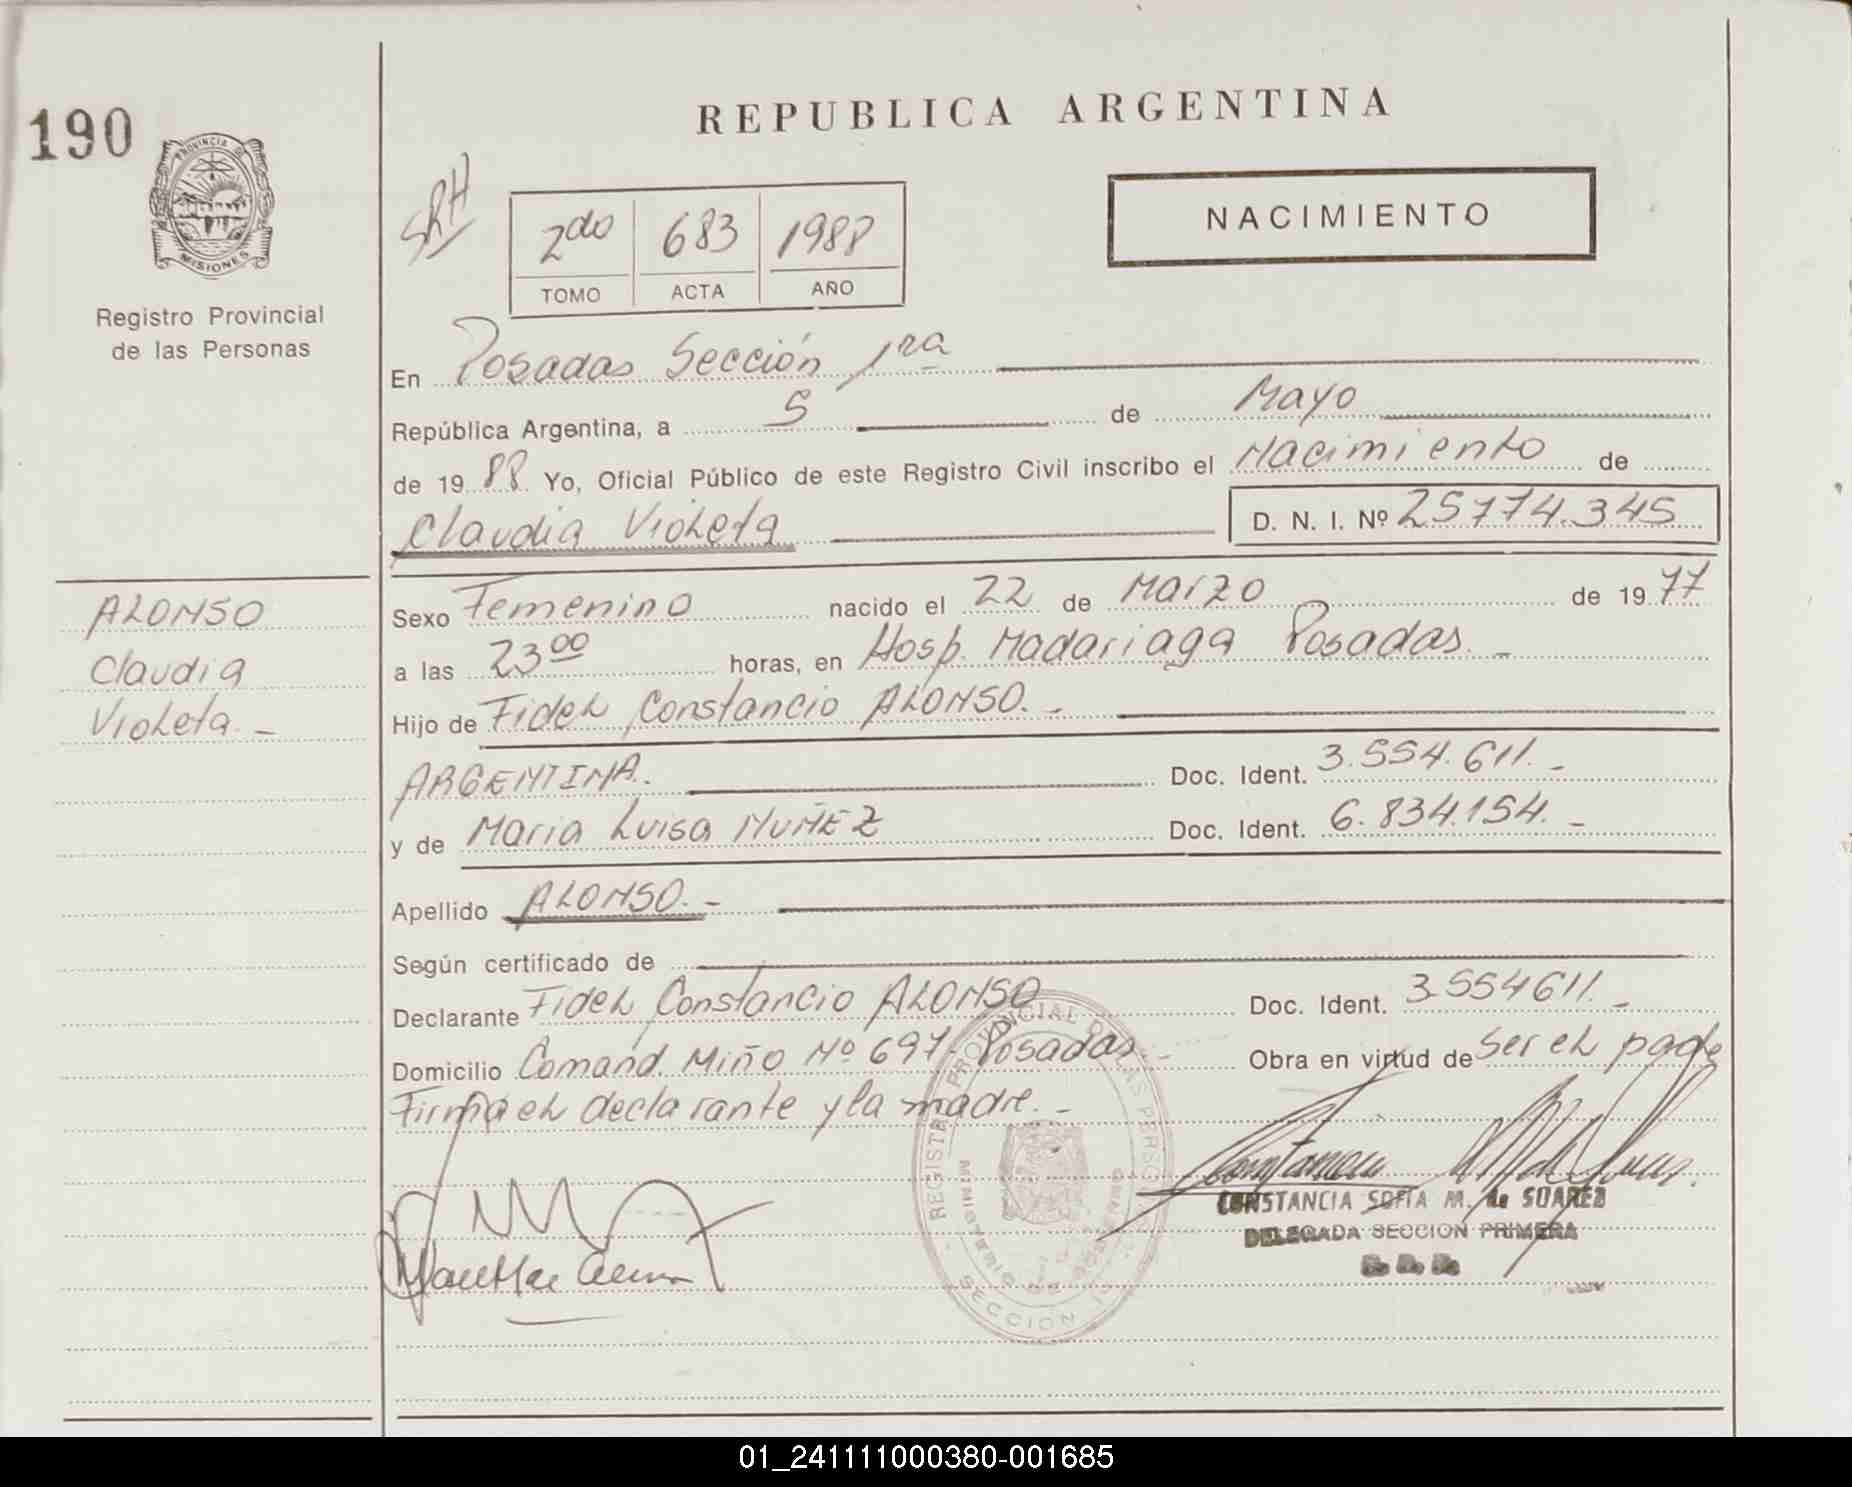 190
PROVINCIA DE
MISIONES
Registro Provincial
de las Personas
REPUBLICA ARGENTINA
SRH
2do 683 1988
TOMO ACTA AÑO
NACIMIENTO
En Posadas Sección 1ra
República Argentina, a 5 de Mayo
de 1988 Yo, Oficial Público de este Registro Civil inscribo el Nacimiento de
Claudia Violeta D. N. I. Nº 25774.345
ALONSO
Claudia
Violeta. -
Sexo Femenino nacido el 22 de Marzo de 1977
a las 23 00 horas, en Hosp. Madariaga Posadas. -
Hijo de Fidel Constancio ALONSO. -
ARGENTINA. Doc. Ident. 3.554.611. -
y de Maria Luisa NUÑEZ Doc. Ident. 6.834.154. -
Apellido ALONSO. -
Según certificado de
Declarante Fidel Constancio ALONSO Doc. Ident. 3.554611. -
Domicilio Comand. Miño Nº 697- Posadas. - Obra en virtud de ser el padre
Firma el declarante y la madre. -
REGISTRO PROVINCIAL DE LAS PERSONAS
MINISTERIO DE GOBIERNO
SECCION 1ª
CONSTANCIA SOFIA M. de SUAREZ
DELEGADA SECCION PRIMERA
01_241111000380-001685